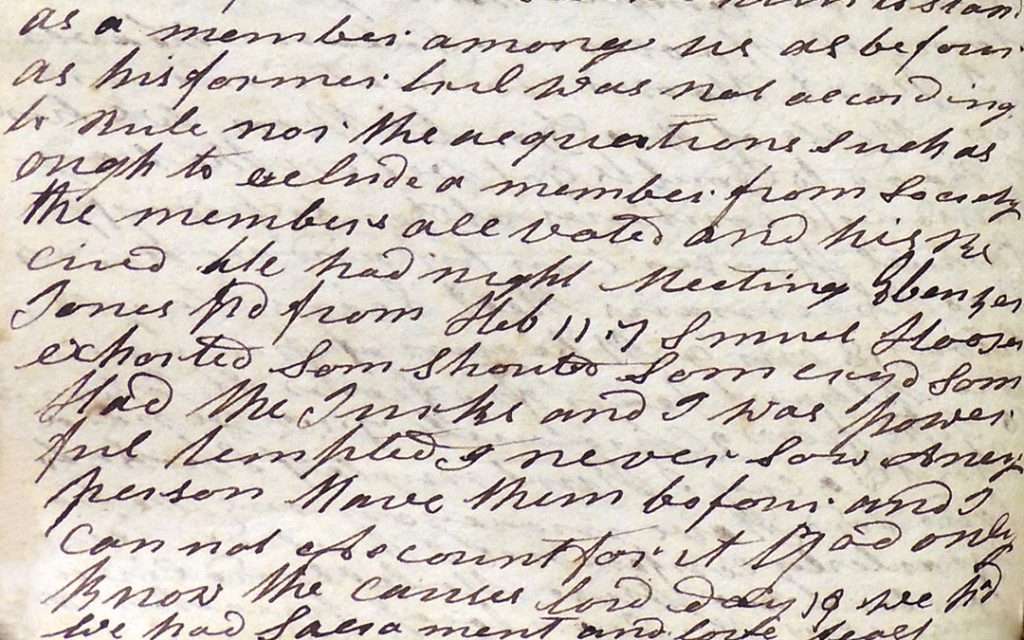 as a member among us as before
as his former tril was not according
to Rule nor the acqustions such as
ough to exclude a member from Society
the members all voted and his Re
cived We had night Meeting Ebenezer
Jones Pd from Heb 11.7 Smuel Hooser
exhorted som shouted som cryd som
Had the Jurks and I was power
ful tempted I never sow Aney
person Have them befour and I
can not Account for it God only
know the causes lord day 18 we hd
we had Sacrament and love feast